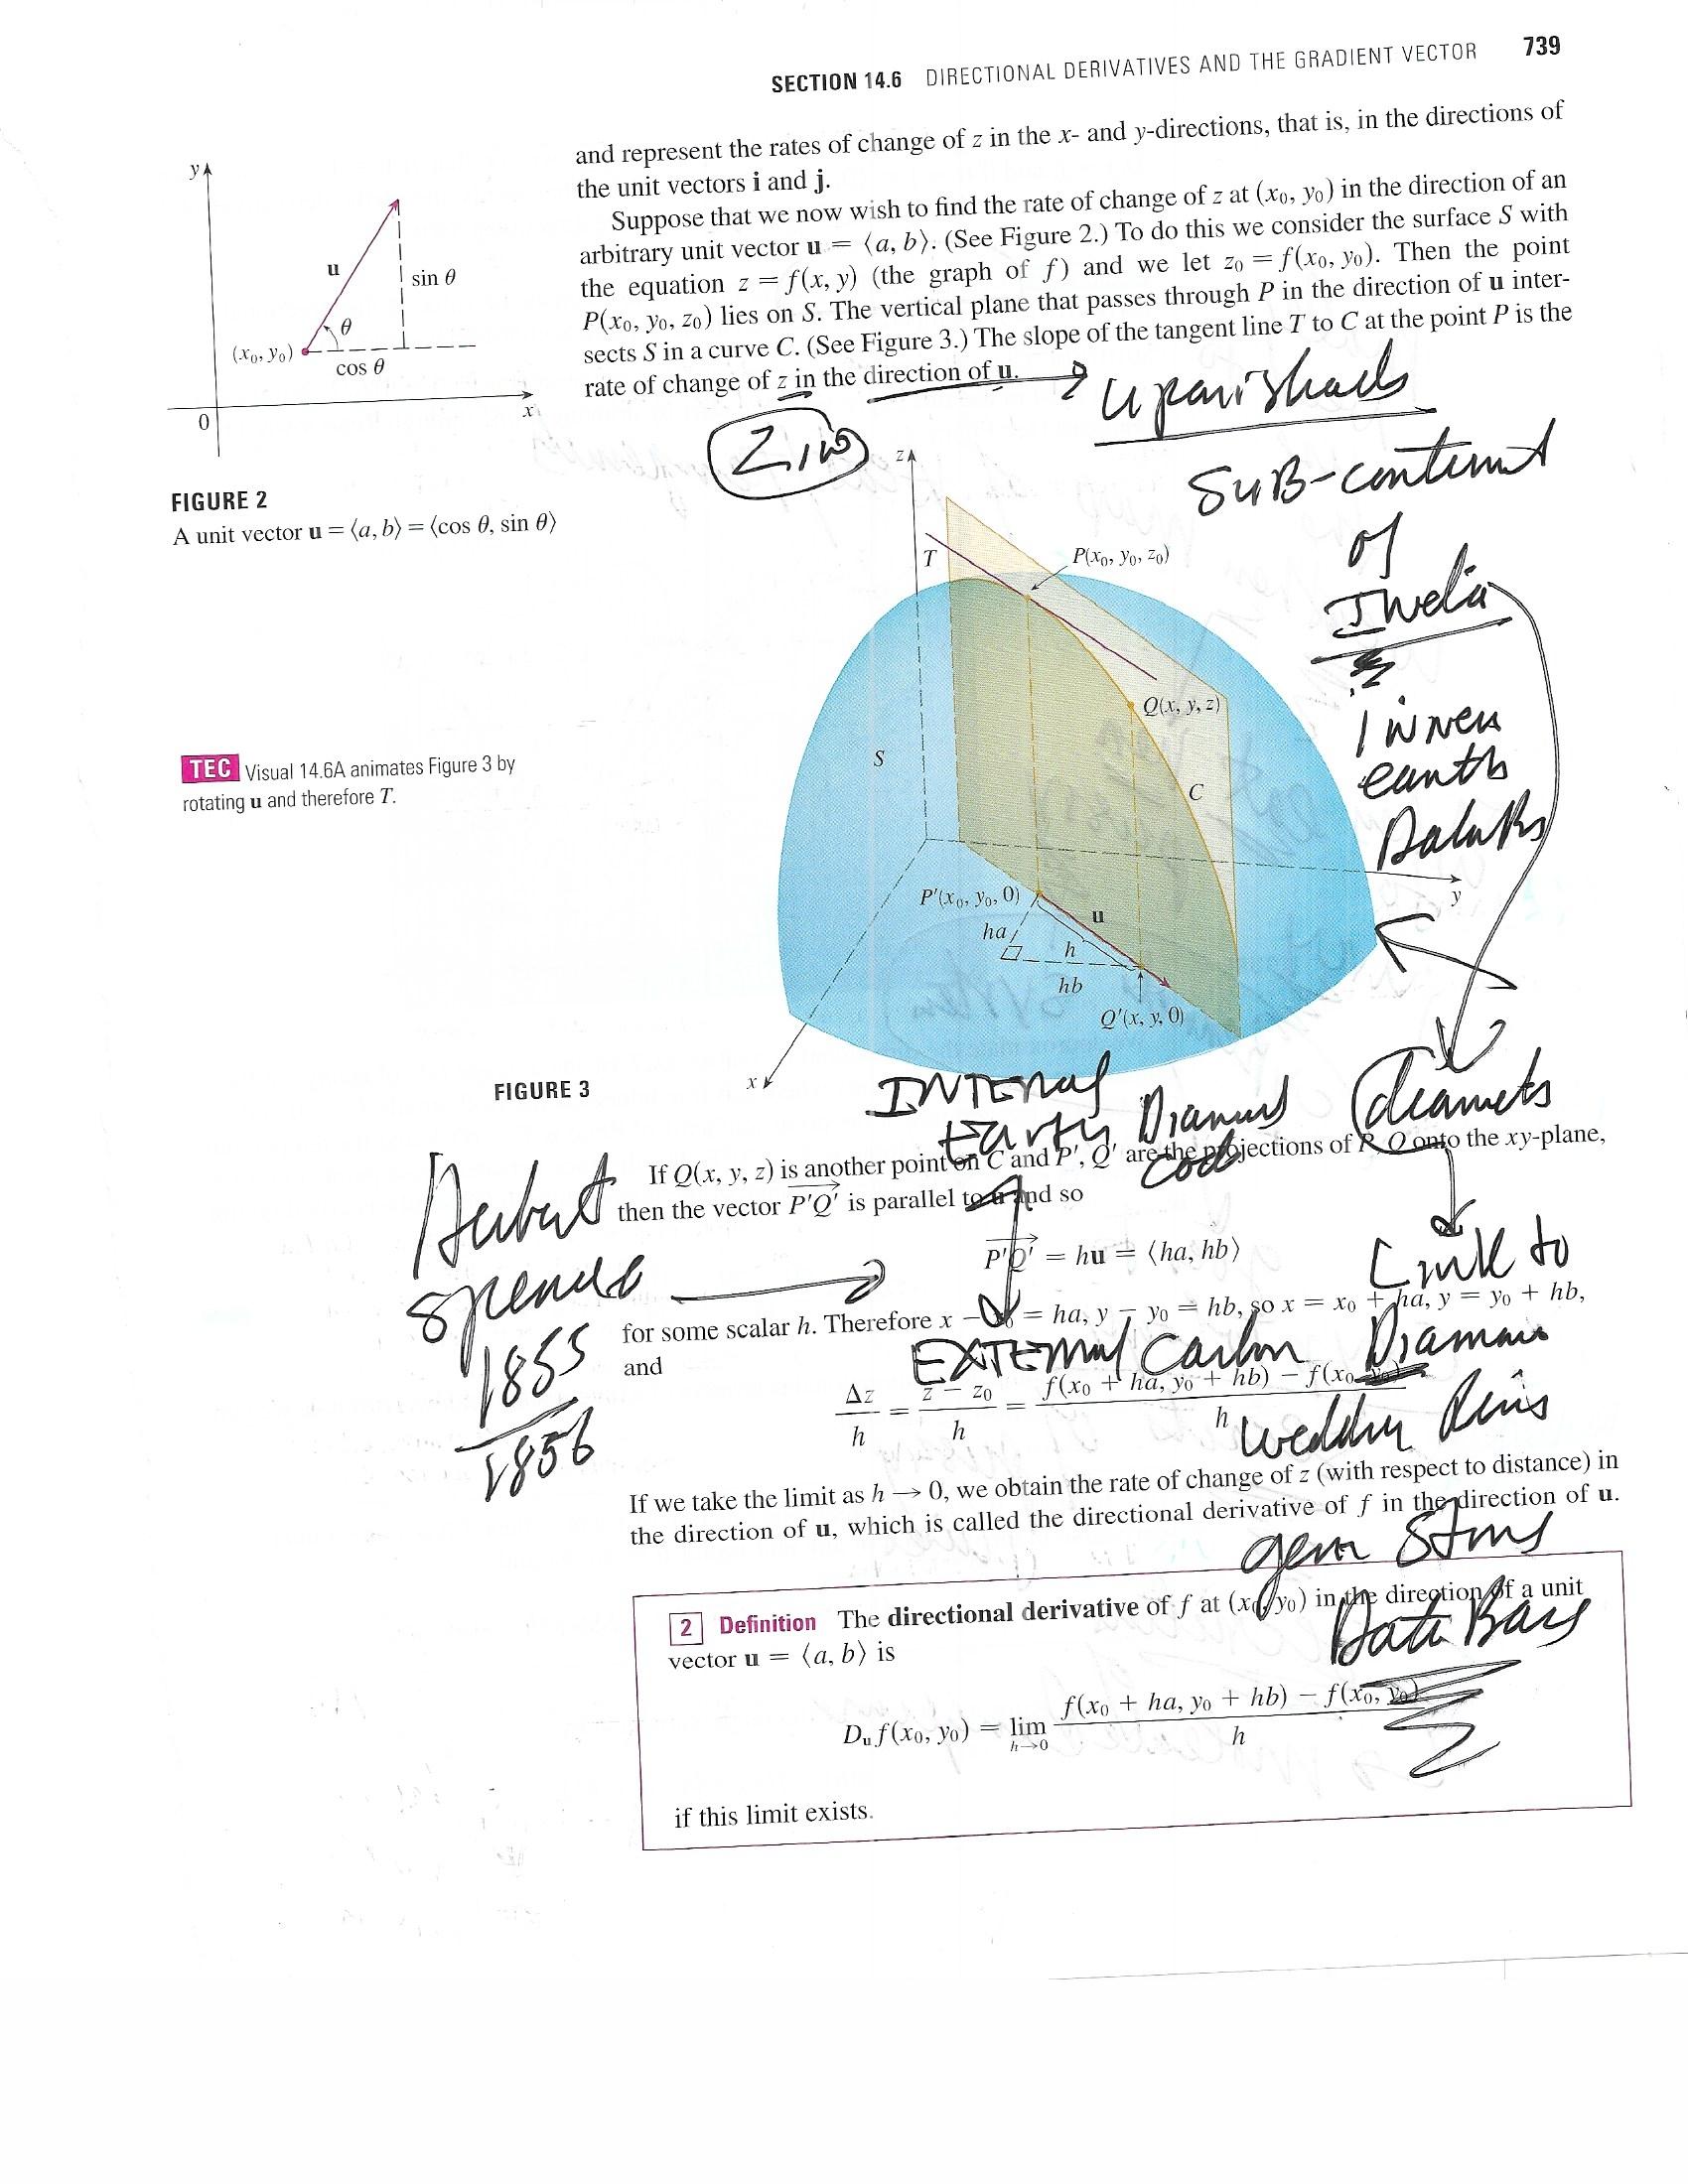 SECTION 14.6 DIRECTIONAL DERIVATIVES AND THE GRADIENT VECTOR 739
and represent the rates of change of z in the x- and y-directions, that is, in the directions of
the unit vectors i and j.
Suppose that we now wish to find the rate of change of z at (x₀, y₀) in the direction of an
arbitrary unit vector u = ⟨a, b⟩. (See Figure 2.) To do this we consider the surface S with
the equation z = f(x, y) (the graph of f) and we let z₀ = f(x₀, y₀). Then the point
P(x₀, y₀, z₀) lies on S. The vertical plane that passes through P in the direction of u inter-
sects S in a curve C. (See Figure 3.) The slope of the tangent line T to C at the point P is the
rate of change of z in the direction of u.
y
u
sin θ
θ
(x₀, y₀)
cos θ
0
x
FIGURE 2
A unit vector u = ⟨a, b⟩ = ⟨cos θ, sin θ⟩
TEC Visual 14.6A animates Figure 3 by
rotating u and therefore T.
Upanishads
SUB-continent
of
India
INNER
earth
z
T
P(x₀, y₀, z₀)
Q(x, y, z)
S
C
y
P′(x₀, y₀, 0)
ha
u
h
hb
Q′(x, y, 0)
x
FIGURE 3
INTERNAL
Earth
code
If Q(x, y, z) is another point on C and P′, Q′ are the projections of P, Q onto the xy-plane,
then the vector P′Q′ is parallel to u and so
P′Q′ = hu = ⟨ha, hb⟩
Link to
for some scalar h. Therefore x − x₀ = ha, y − y₀ = hb, so x = x₀ + ha, y = y₀ + hb,
and
1855
1856
EXTERNAL Carbon
Δz/h = (z − z₀)/h = (f(x₀ + ha, y₀ + hb) − f(x₀, y₀))/h
If we take the limit as h → 0, we obtain the rate of change of z (with respect to distance) in
the direction of u, which is called the directional derivative of f in the direction of u.
gem
2 Definition The directional derivative of f at (x₀, y₀) in the direction of a unit
vector u = ⟨a, b⟩ is
Data
Dᵤ f(x₀, y₀) = lim h→0 (f(x₀ + ha, y₀ + hb) − f(x₀, y₀))/h
if this limit exists.